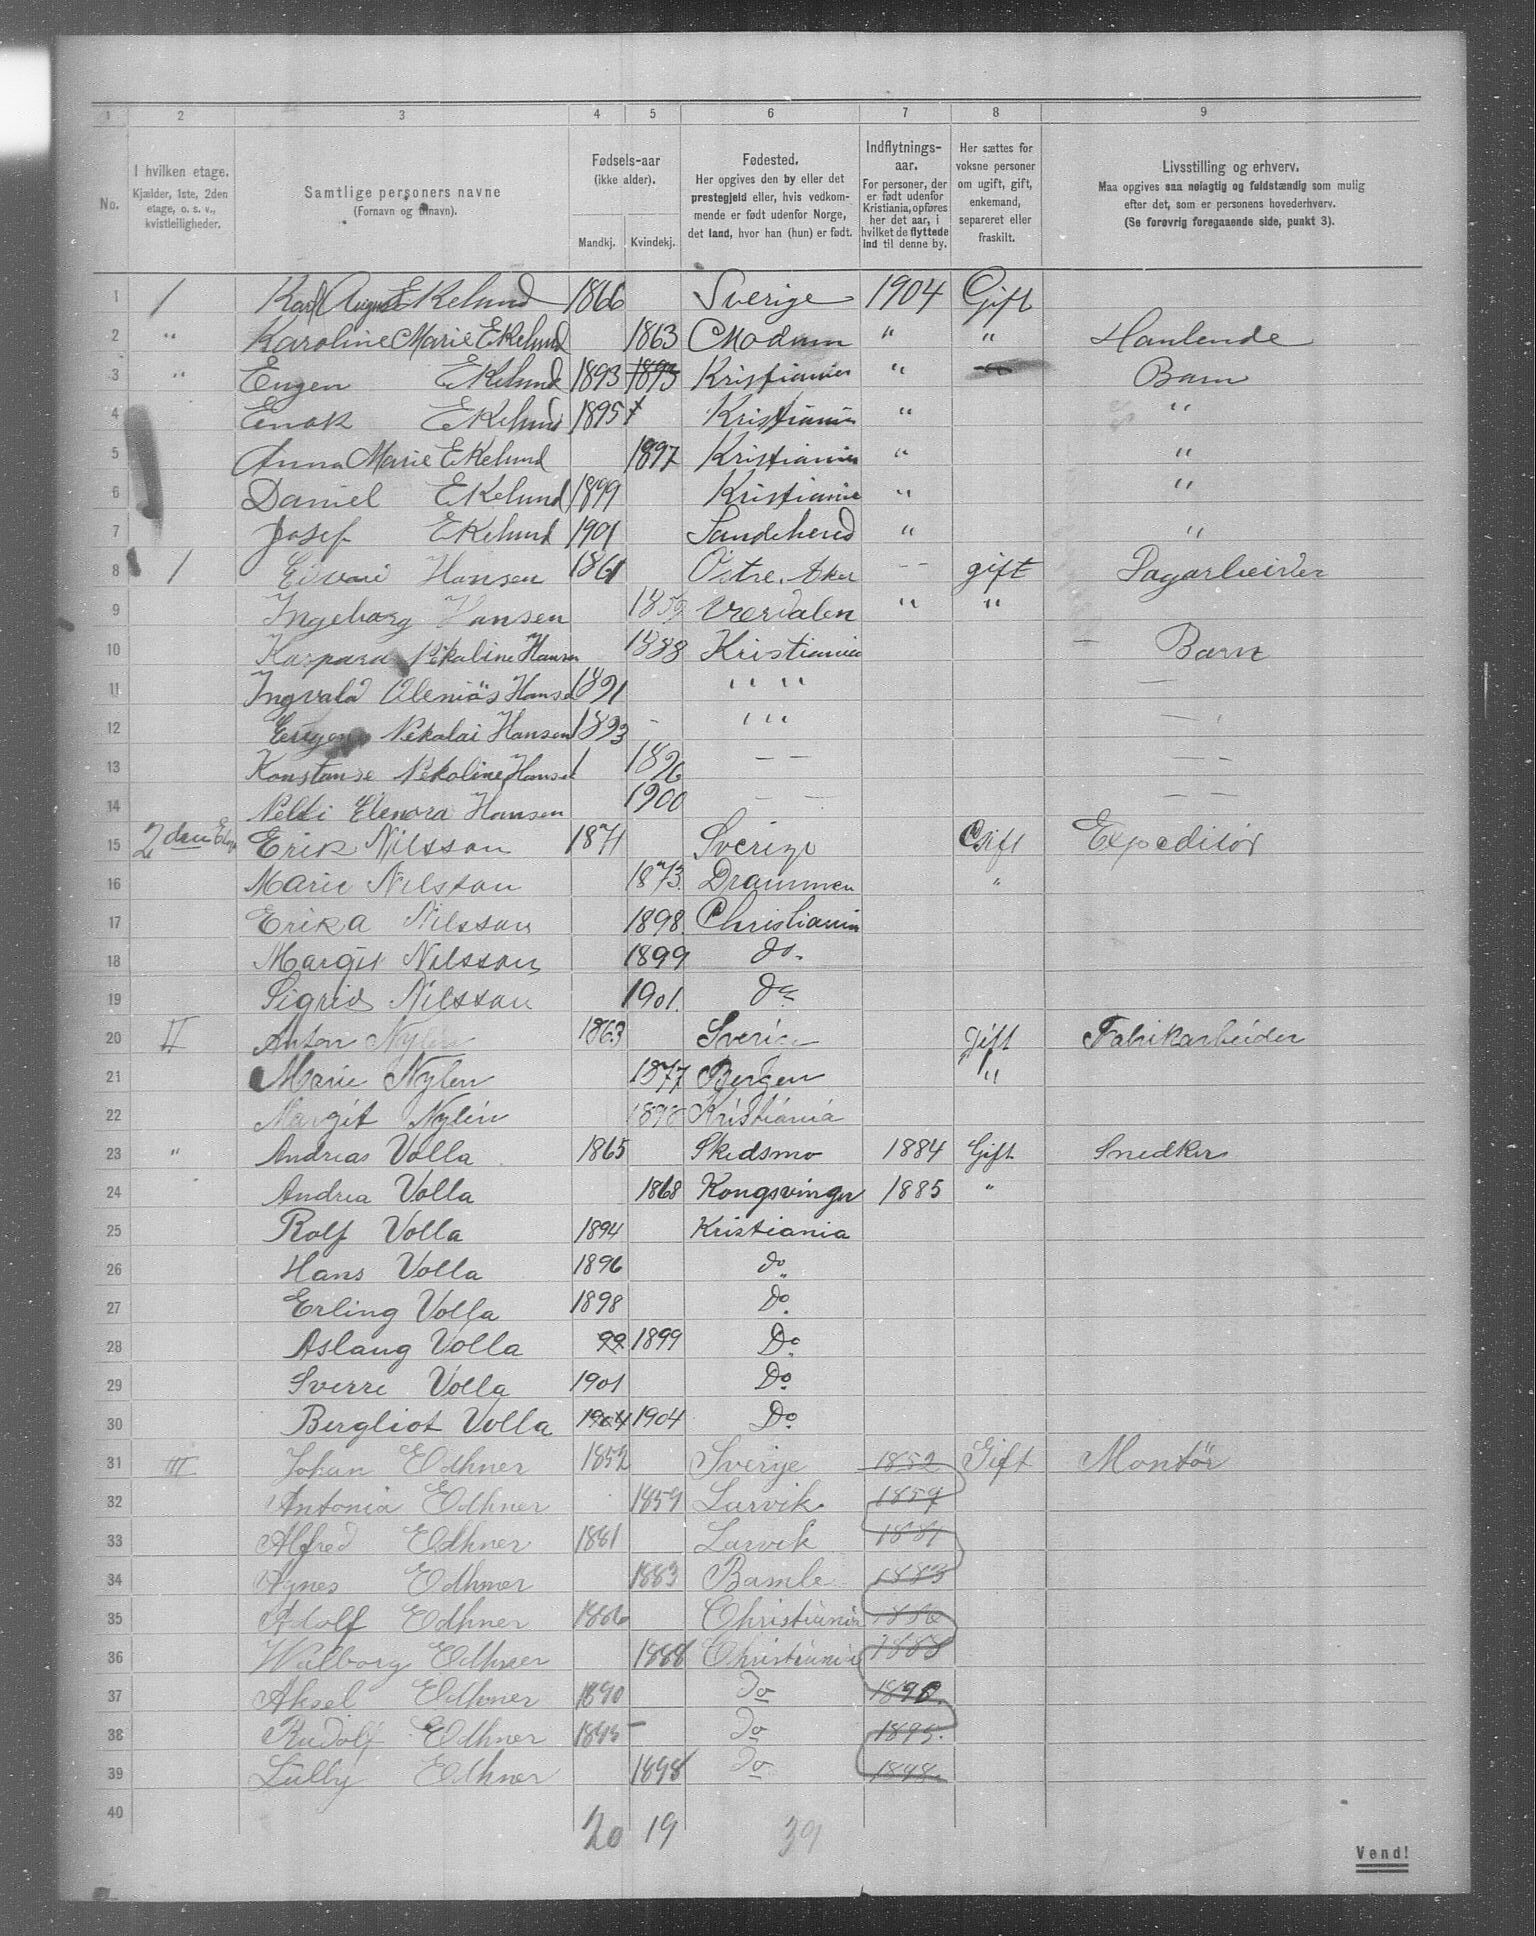 1 2 3 4 5 6 7 8 9
No.
I hvilken etage.
Kjælder, 1ste, 2den etage, o. s. v., kvistleiligheder.
Samtlige personers navne
(Fornavn og tilnavn).
Fødsels-aar
(ikke alder).
Mandkj. Kvindekj.
Fødested.
Her opgives den by eller det prestegjeld eller, hvis vedkommende er født udenfor Norge, det land, hvor han (hun) er født.
Indflytnings-aar.
For personer, der er født udenfor Kristiania, opføres her det aar, i hvilket de flyttede ind til denne by.
Her sættes for voksne personer om ugift, gift, enkemand, separeret eller fraskilt.
Livsstilling og erhverv.
Maa opgives saa nøiagtig og fuldstændig som mulig efter det, som er personens hovederhverv.
(Se forøvrig foregaaende side, punkt 3).
1 1 Karl August Ekelund 1866 Sverige 1904 Gift
2 " Karoline Marie Ekelund 1863 Modum " " Hanlende
3 " Eugen Ekelund 1893 1893 Kristiania " Barn
4 Enok Ekelund 1895 Kristiania " "
5 Anna Marie Ekelund 1897 Kristiania " "
6 Daniel Ekelund 1899 Kristiania " "
7 Josef Ekelund 1901 Sandeherred " "
8 1 Edvard Hansen 1861 Østre Aker " gift Dagarbeider
9 Ingeborg Hansen 1859 Værdalen " "
10 Kaspara Nekoline Hansen 1888 Kristiania Barn
11 Ingvald Hansen 1891 " "
12 Eugen Nekolai Hansen 1893 " "
13 Konstanse Nekoline Hansen 1896 — —
14 Nelli Elenora Hansen 1900 — —
15 2den Etage Erik Nilsson 1871 Sverige Gift Expeditør
16 Marie Nilsson 1873. Drammen "
17 Erika Nilsson 1898. Christiania
18 Margit Nilsson 1899 do.
19 Sigrid Nilsson 1901. do
20 II Anton Nylen 1863 Sverige gift Fabrikarbeider
21 Marie Nylen 1877 Bergen "
22 Margit Nylén 1898 Kristiania
23 " Andreas Volla 1865 Skedsmo 1884 Gift Snedker
24 Andrea Volla 1868 Kongsvinger 1885 "
25 Rolf Volla 1894 Kristiania
26 Hans Volla 1896 do
27 Erling Volla 1898 Do
28 Aslaug Volla 99 1899 Do
29 Sverre Volla 1901 Do
30 Bergliot Volla 1904 1904 Do
31 III Johan Edhner 1852 Sverige 1852 Gift Montør
32 Antonia Edhner 1859 Larvik 1859
33 Alfred Edhner 1881 Larvik 1881
34 Agnes Edhner 1883 Bamle 1883
35 Adolf Edhner 1886 Christiania 1886
36 Walborg Edhner 1888 Christiania 1888
37 Aksel Edhner 1890 Do 1890.
38 Rudolf Edhner 1895 Do 1895.
39 Lully Edhner 1898 Do 1898.
40
20 19 39
Vend!